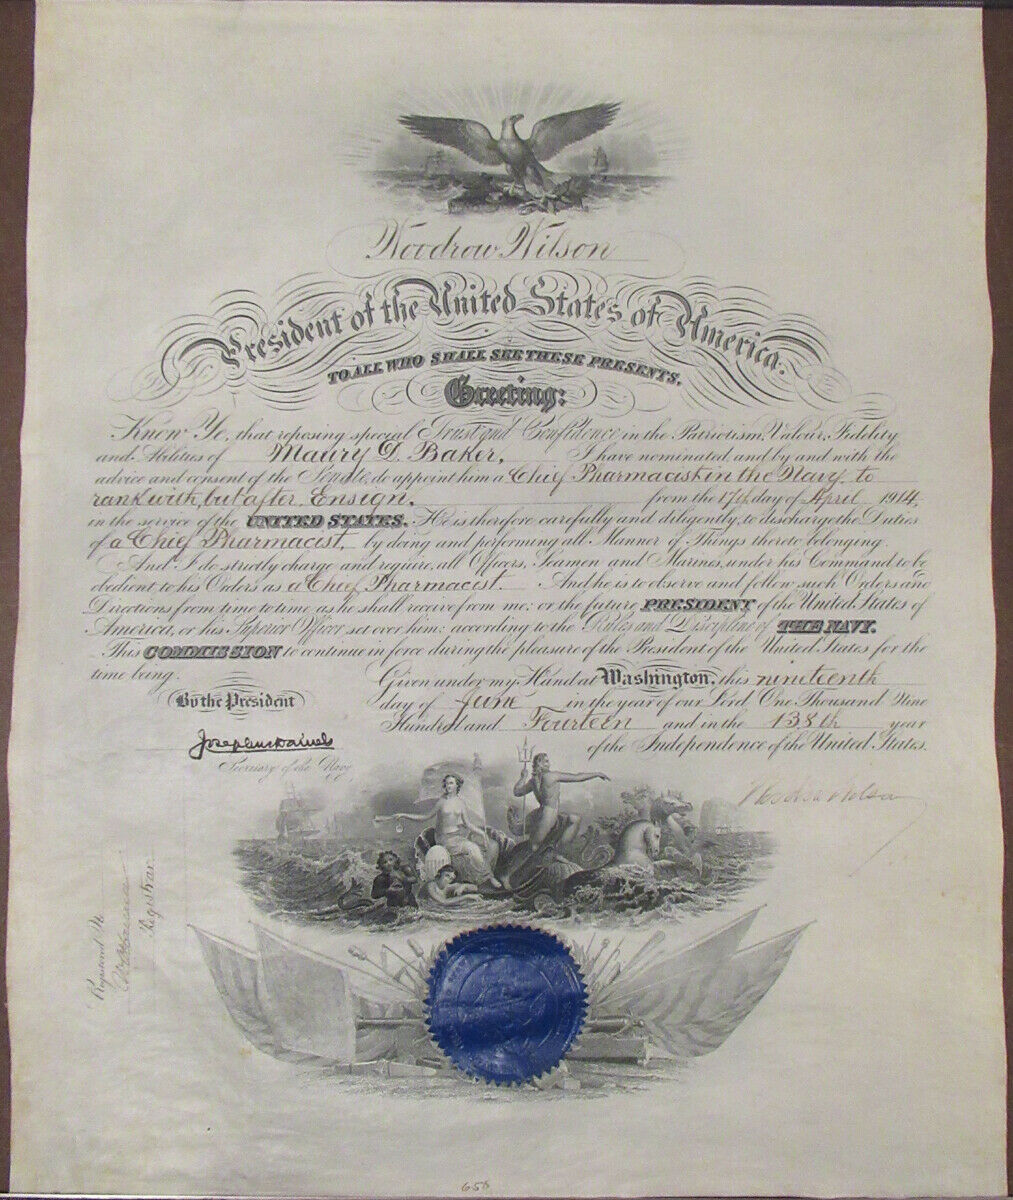 Woodrow Wilson
President of the United States of America.
TO ALL WHO SHALL SEE THESE PRESENTS,
Greeting:
Know Ye, that reposing special Trust and Confidence in the Patriotism, Valour, Fidelity
and Abilities of Maury D. Baker, I have nominated and by and with the
advice and consent of the Senate, do appoint him a Chief Pharmacist in the Navy, to
rank with, but after, Ensign, from the 17th day of April 1914,
in the service of the UNITED STATES. He is therefore carefully and diligently, to discharge the Duties
of a Chief Pharmacist, by doing and performing all Manner of Things thereto belonging.
And I do strictly charge and require, all Officers, Seamen and Marines, under his Command to be
obedient to his Orders as a Chief Pharmacist. And he is to observe and follow such Orders and
Directions from time to time as he shall receive from me; or the future PRESIDENT of the United States of
America, or his Superior Officer set over him; according to the Rules and Discipline of THE NAVY.
This COMMISSION to continue in force during the pleasure of the President of the United States for the
time being.
Given under my Hand at Washington, this nineteenth
day of June in the year of our Lord One Thousand Nine
Hundred and Fourteen and in the 138th year
of the Independence of the United States.
By the President
Josephus Daniels
Secretary of the Navy
Woodrow Wilson
Registered No
Registrar
658